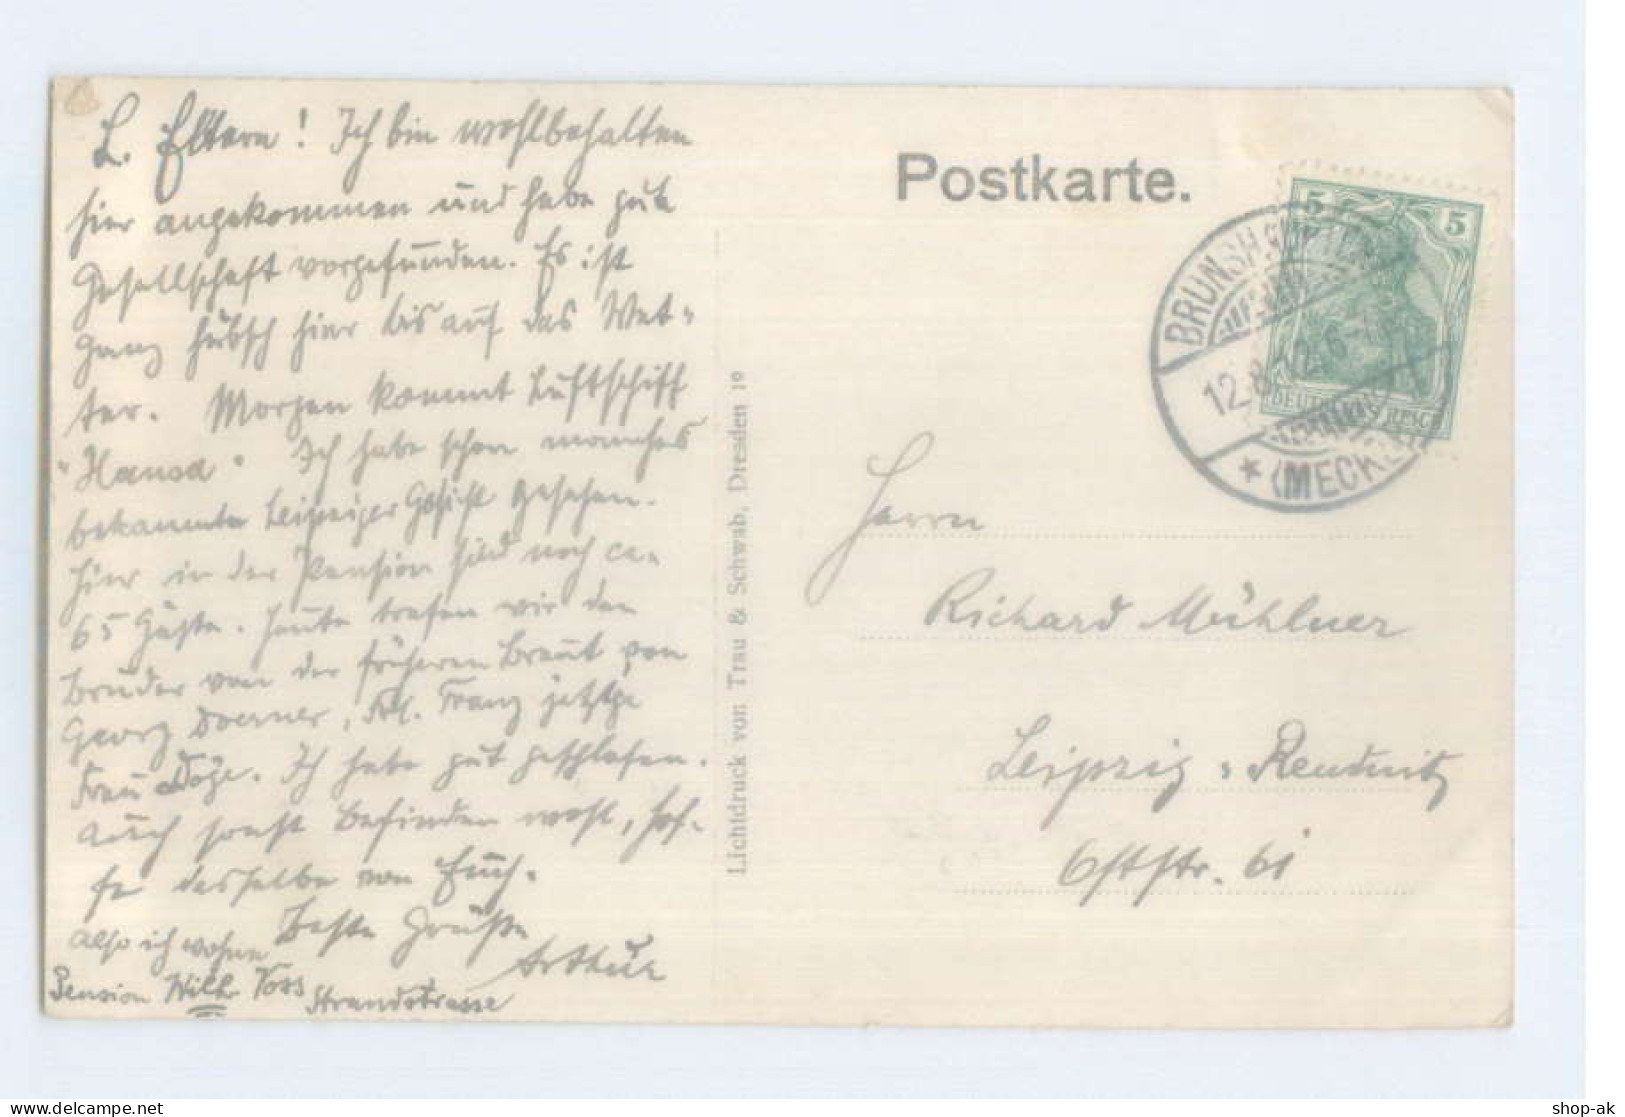 L. Eltern! Ich bin wohlbehalten
hier angekommen und habe gute
Gesellschaft vorgefunden. Es ist
ganz hübsch hier bis auf das Wet=
ter. Morgen kommt Luftschiff
"Hansa". Ich habe schon manches
bekannte Leipziger Gesicht gesehen.
Hier in der Pension sind noch ca.
65 Gäste. Heute trafen wir den
Bruder von der früheren Braut von
Georg Doerner, Frl. Franz jetzige
Frau. Ich habe gut geschlafen.
Auch sonst Befinden wohl, hof-
fe dasselbe von Euch.
Beste Grüße
Arthur
Also ich wohne
Pension Wilh. Voss Strandstrasse
Lichtdruck von Trau & Schwab, Dresden 19
Postkarte.
5 5
DEUTSCHES REICH
BRUNSHAUPTEN
12.8.
* (MECKL)
Herrn
Richard Mühlner
Leipzig = Reudnitz
Oststr. 61
shop-ak